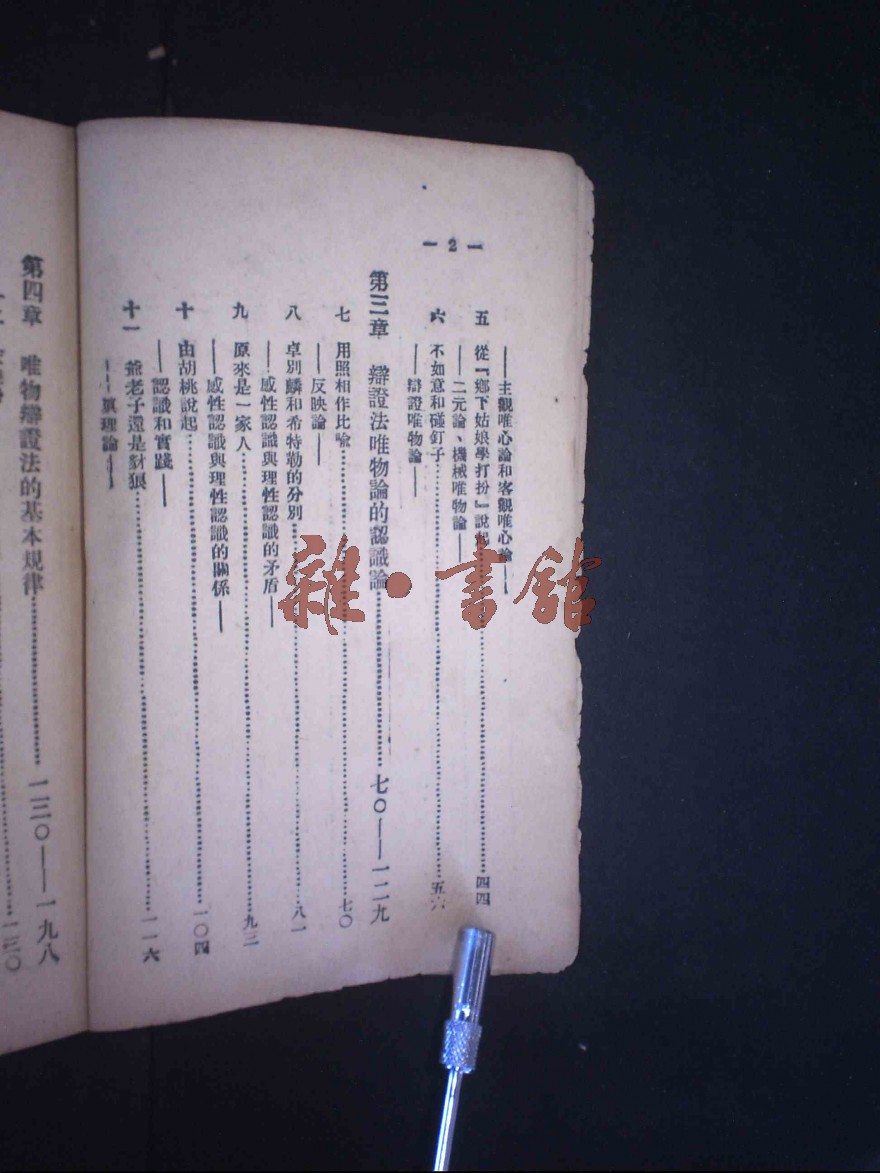 — 2 —
——主觀唯心論和客觀唯心論——
五 從『鄉下姑娘學打扮』說起……四四
——二元論、機械唯物論——
六 不如意和碰釘子……五六
——辯證唯物論——
第三章 辯證法唯物論的認識論……七〇——一二九
七 用照相作比喻……七〇
——反映論——
八 卓別麟和希特勒的分別……八一
——感性認識與理性認識的矛盾——
九 原來是一家人……九三
——感性認識與理性認識的關係——
十 由胡桃說起……一〇四
——認識和實踐——
十一 爺老子還是豺狼……一一六
——眞理論——
第四章 唯物辯證法的基本規律……一三〇——一九八
一三〇
雜·書館